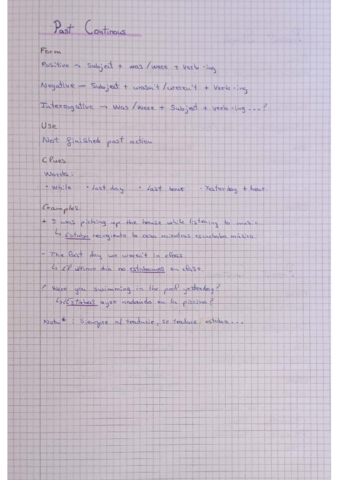 Past Continous
Form
Positive → Subject + was / were + verb -ing
Negative → Subject + wasn't / weren't + verb -ing
Interrogative → Was / were + Subject + verb -ing ...?
Use
Not finished past action
Clues
Words:
• While • Last day • Last hour • Yesterday + hour
Examples:
+ I was picking up the house while listening to music.
↳ Estaba recogiendo la casa mientras escuchaba música.
- The last day we weren't in class.
↳ El último día no estábamos en clase.
? Were you swimming in the pool yesterday?
↳ ¿Estabas ayer nadando en la piscina?
Nota* : Siempre al traducir, se traduce estaba...